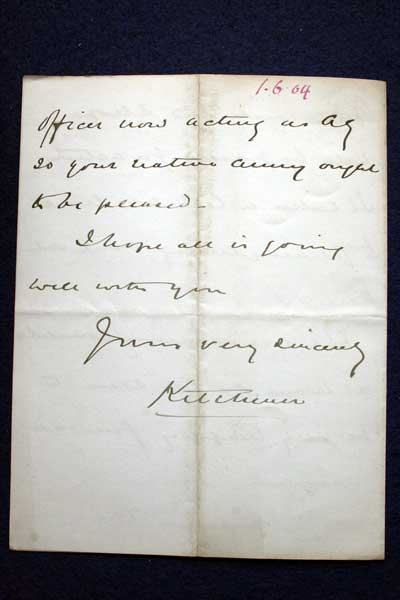 1-6-04
officer now acting as AG
so your native army ought
to be pleased -
I hope all is going
well with you
Yours very sincerely
Kitchener